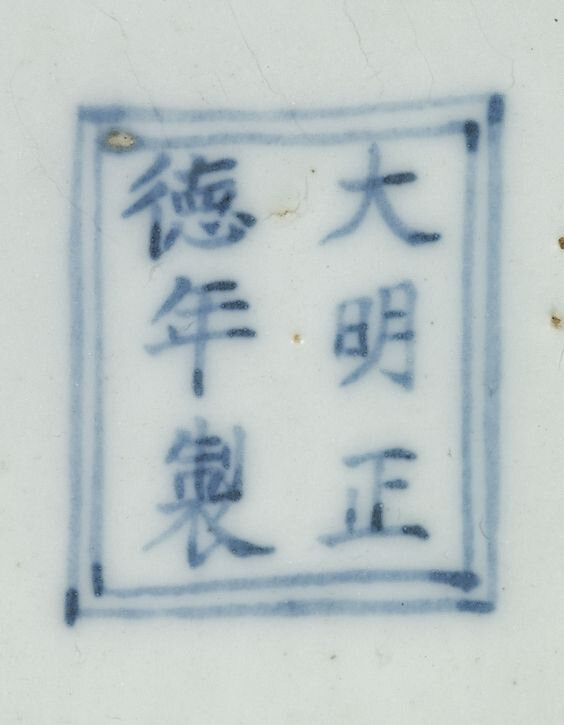 大明正
德年製